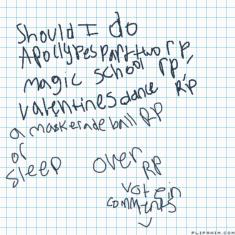 Should I do
Apollypes part two rp,
magic school rp,
valentines dance RP
a maskerade ball RP
or
sleep over RP
vote in
comments
FLIPANIM.COM